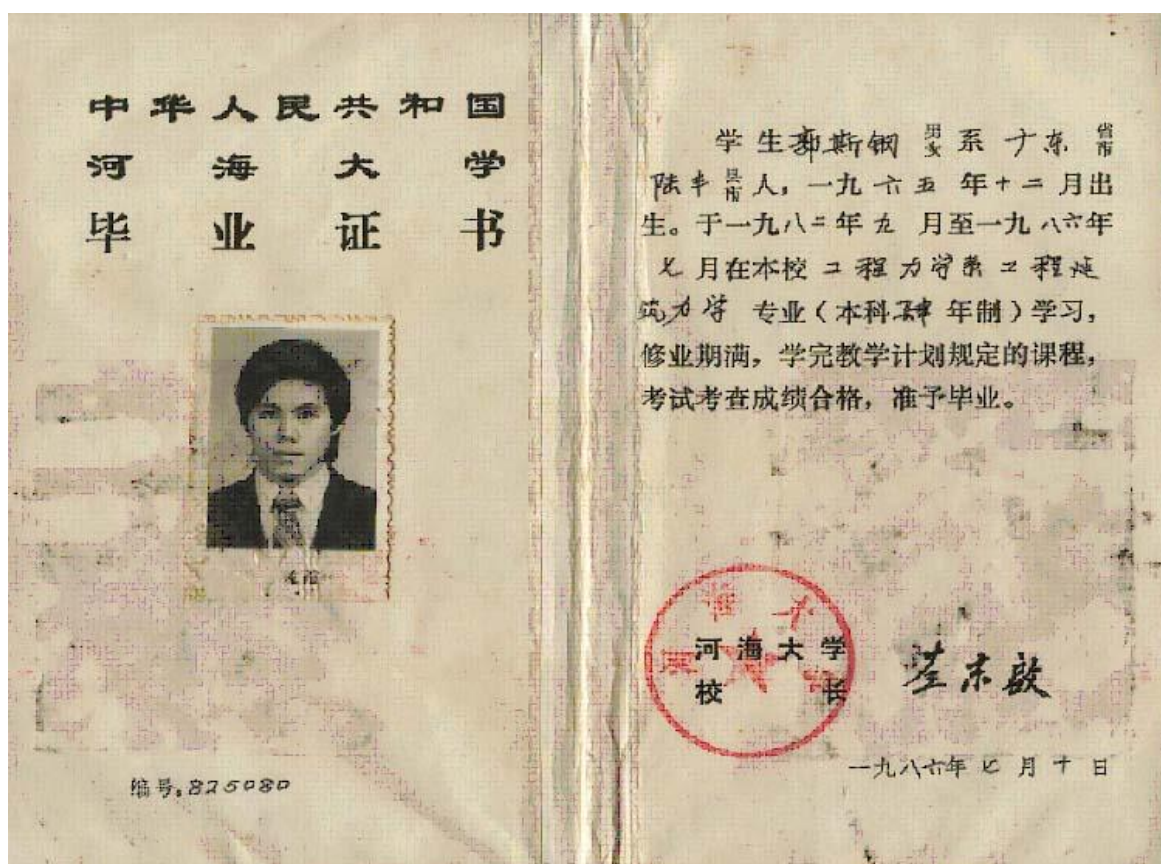 中华人民共和国
河海大学
毕业证书
编号:825080
学生郭斯钢 男女 系 广东 省市
陆丰 县市 人,一九六五年十二月出
生。于一九八二年九月至一九八六年
七月在本校工程力学系工程建
筑力学 专业(本科肆年制)学习,
修业期满,学完教学计划规定的课程,
考试考查成绩合格,准予毕业。
河海大学
校长
一九八六年七月十日